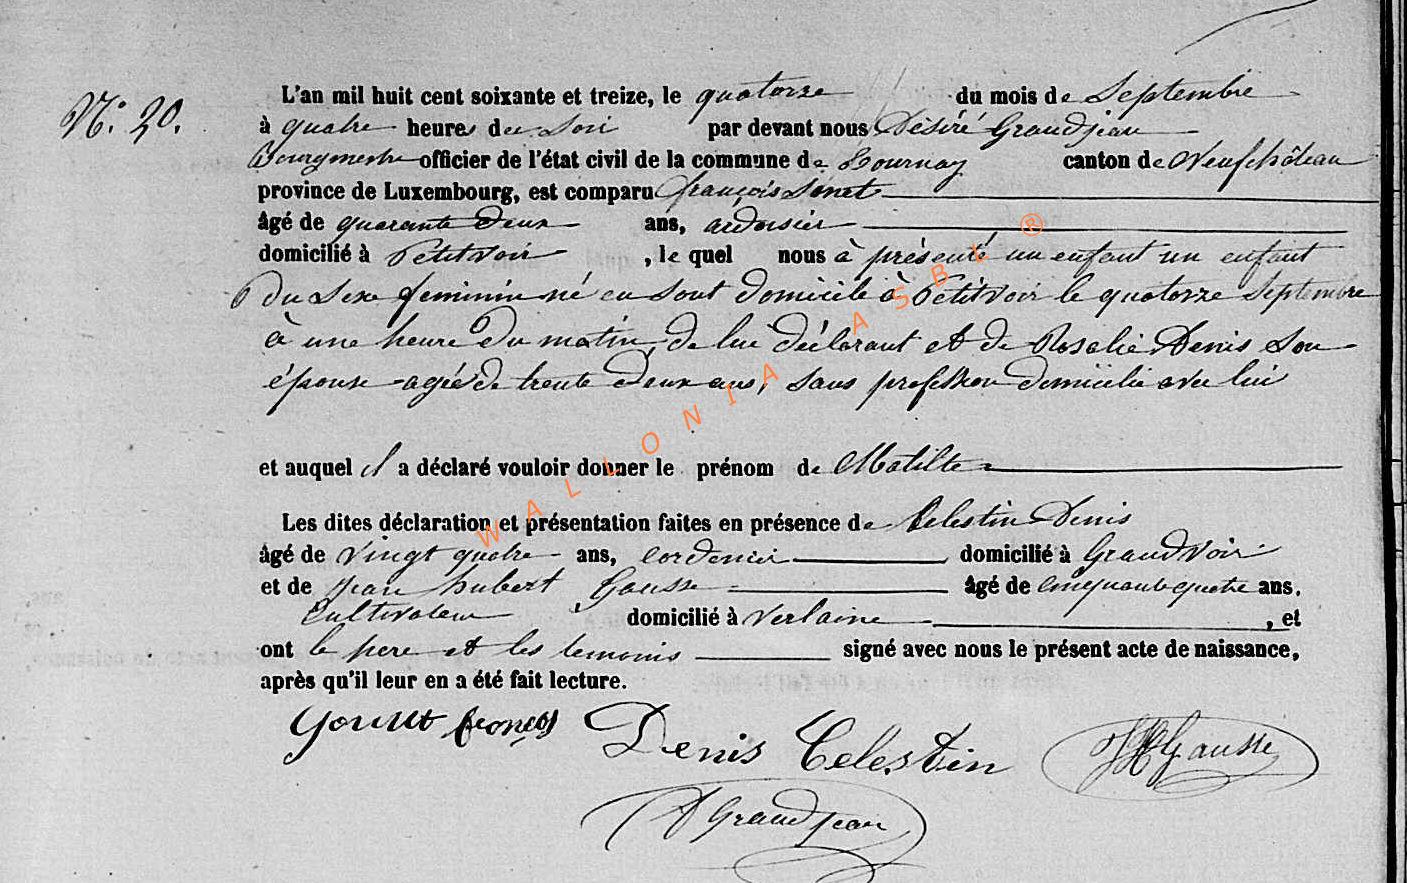 N.° 20.
L'an mil huit cent soixante et treize, le quatorze du mois de Septembre
à quatre heures du Soir par devant nous Désiré Grandjean
Bourgmestre officier de l'état civil de la commune de Tournay canton de Neufchâteau
province de Luxembourg, est comparu françois
âgé de quarante deux ans, ardoisier
domicilié à Petitvoir, le quel nous à présenté un enfant un enfant
du Sexe feminin né en Sont domicile à Petitvoir le quatorze Septembre
à une heure du matin, de lui déclarant et de Rosalie Denis Son
épouse agée de trente deux ans, Sans profession domicilié avec lui
et auquel il a déclaré vouloir donner le prénom de Matilte
Les dites déclaration et présentation faites en présence de Celestin Denis
âgé de vingt quatre ans, cordonier domicilié à Grandvoir
et de Jean hubert Gausse âgé de cinquante quatre ans.
Cultivateur, domicilié à Verlaine, et
ont le pere et les temoins signé avec nous le présent acte de naissance,
après qu'il leur en a été fait lecture.
françois Denis Celestin JHGausse
D Grandjean
WALLONIA ASBL ®